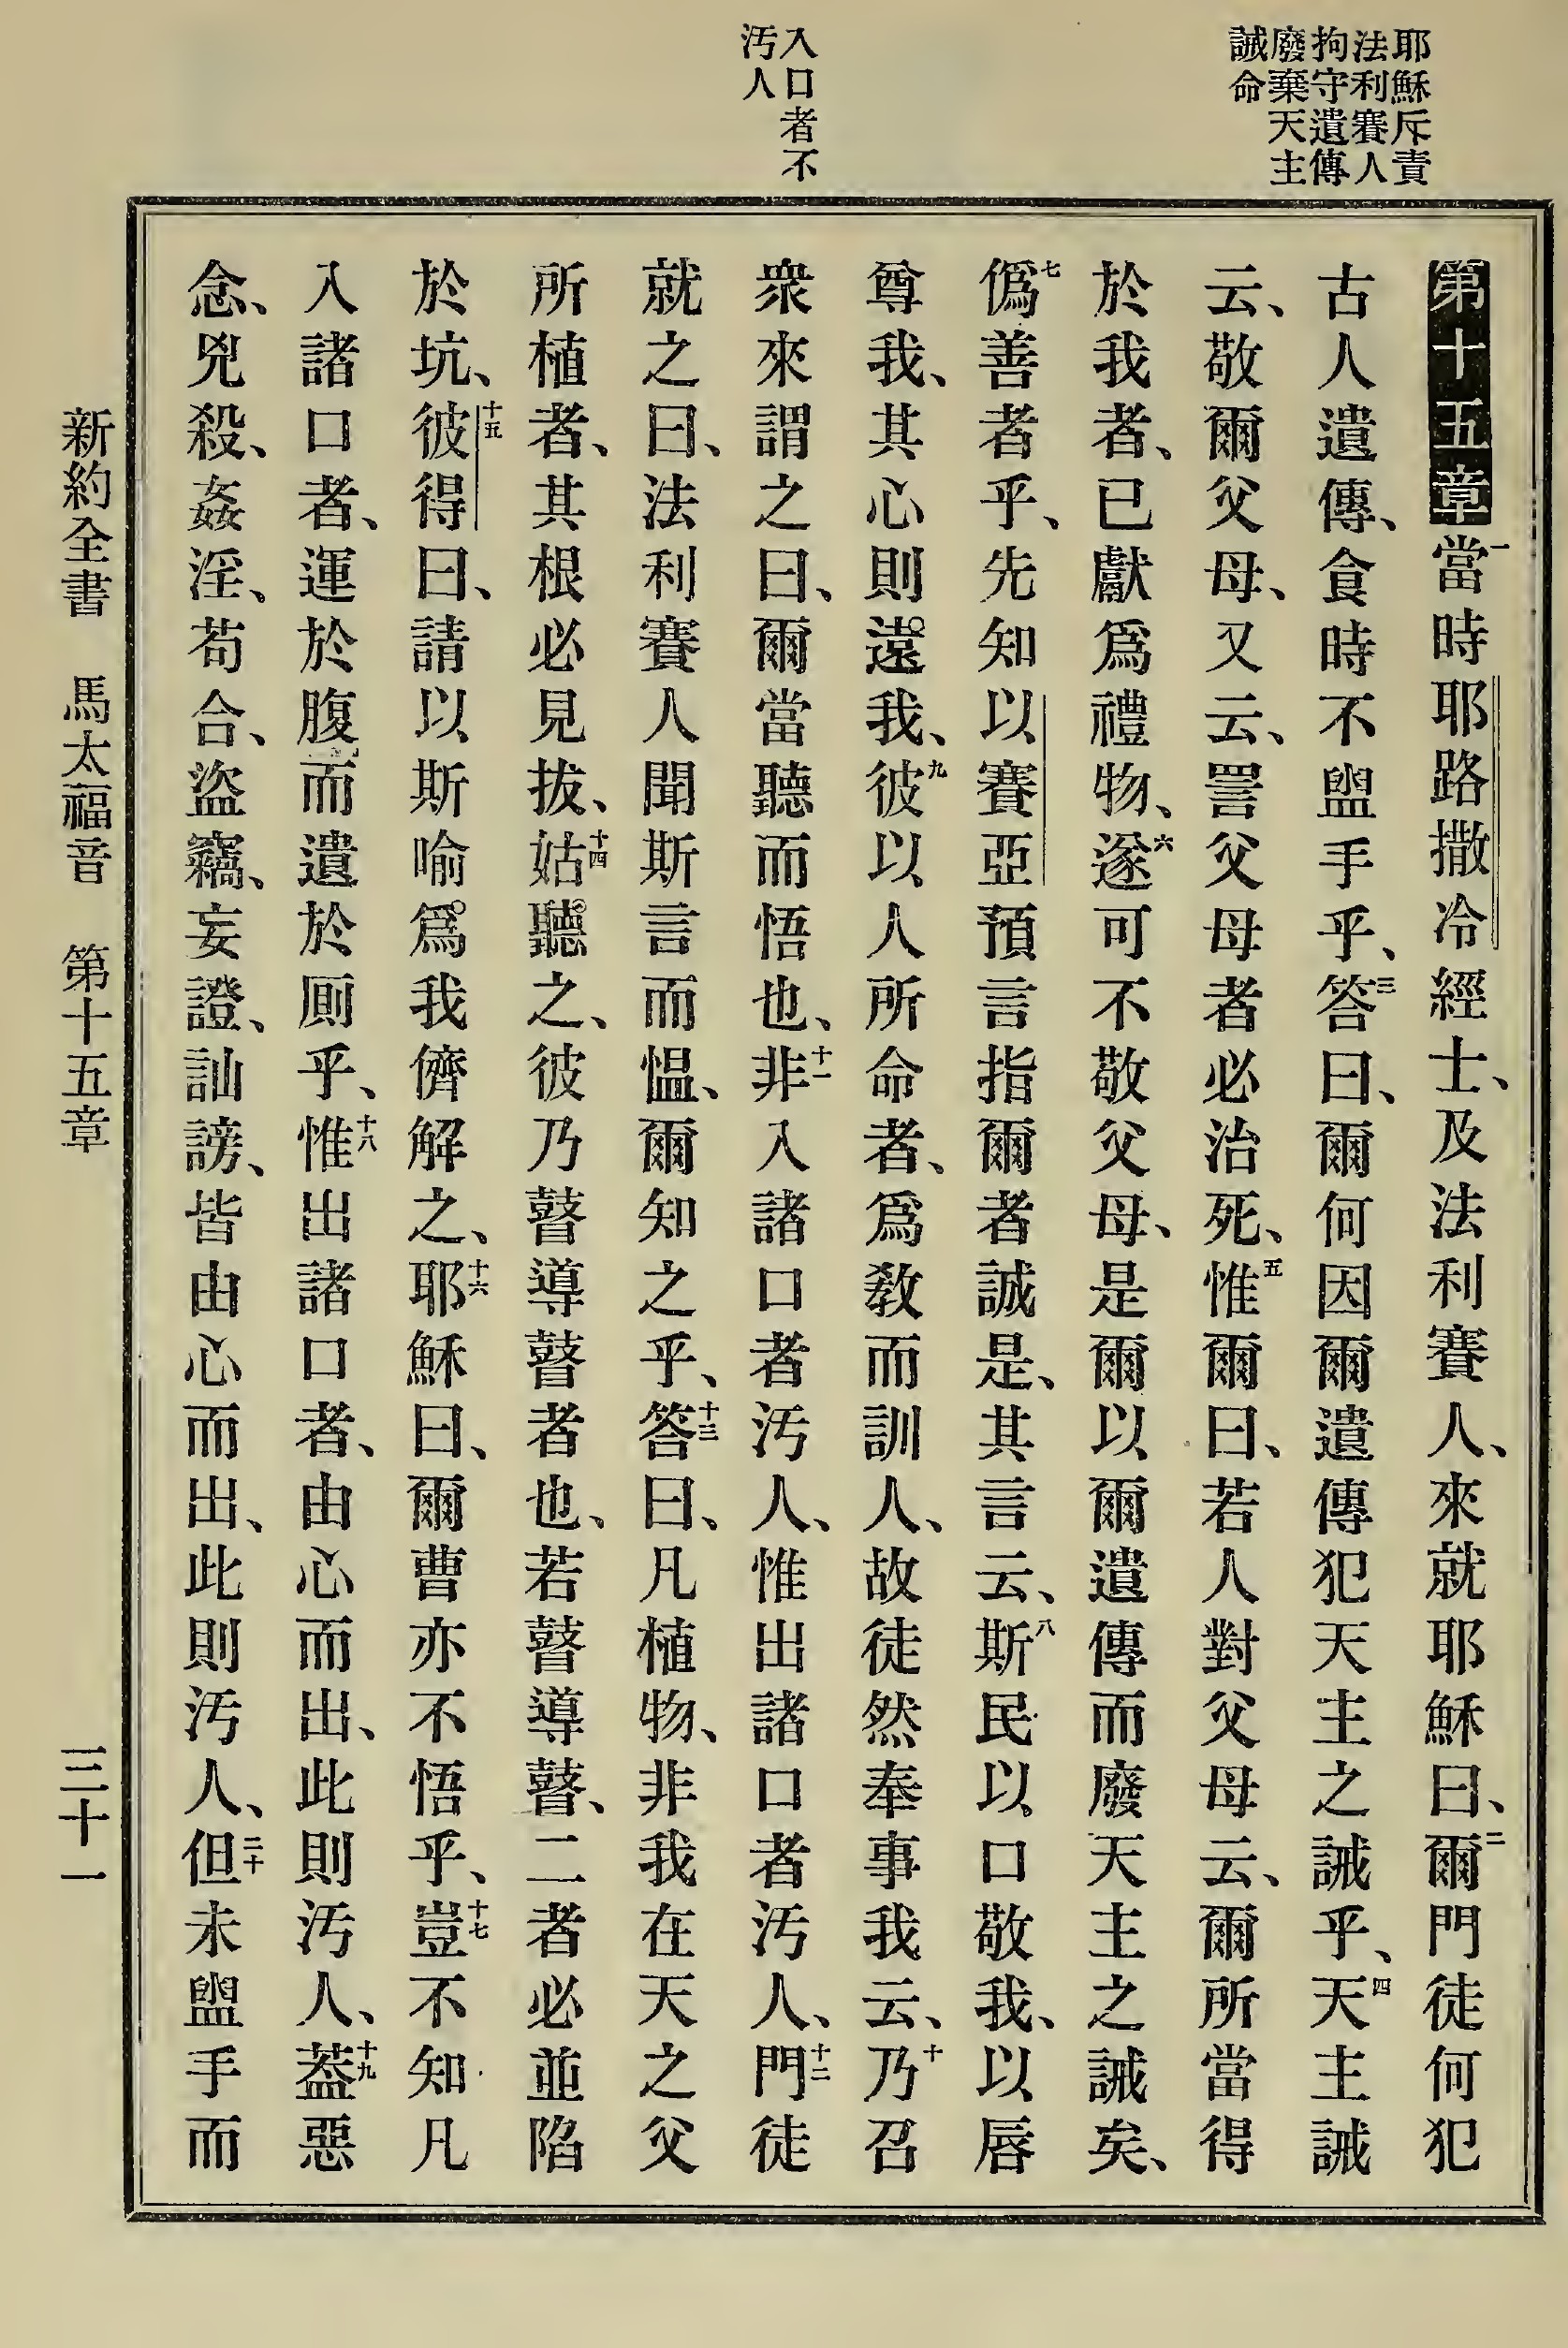 耶穌斥責
法利賽人
拘守遺傳
廢棄天主
誡命
入口者不
汚人
第十五章 一當時耶路撒冷經士、及法利賽人、來就耶穌曰、二爾門徒何犯
古人遺傳、食時不盥手乎、三答曰、爾何因爾遺傳犯天主之誡乎、四天主誡
云、敬爾父母、又云、詈父母者必治死、五惟爾曰、若人對父母云、爾所當得
於我者、已獻爲禮物、六遂可不敬父母、是爾以爾遺傳而廢天主之誡矣、
七僞善者乎、先知以賽亞預言指爾者誠是、其言云、八斯民以口敬我、以唇
尊我、其心則遠我、九彼以人所命者、爲敎而訓人、故徒然奉事我云、十乃召
衆來謂之曰、爾當聽而悟也、十一非入諸口者汚人、惟出諸口者汚人、十二門徒
就之曰、法利賽人聞斯言而慍、爾知之乎、十三答曰、凡植物、非我在天之父
所植者、其根必見拔、十四姑聽之、彼乃瞽導瞽者也、若瞽導瞽、二者必並陷
於坑、十五彼得曰、請以斯喻爲我儕解之、十六耶穌曰、爾曹亦不悟乎、十七豈不知凡
入諸口者、運於腹而遺於廁乎、十八惟出諸口者、由心而出、此則汚人、十九蓋惡
念、兇殺、姦淫、苟合、盜竊、妄證、訕謗、皆由心而出、此則汚人、二十但未盥手而
新約全書 馬太福音 第十五章 三十一